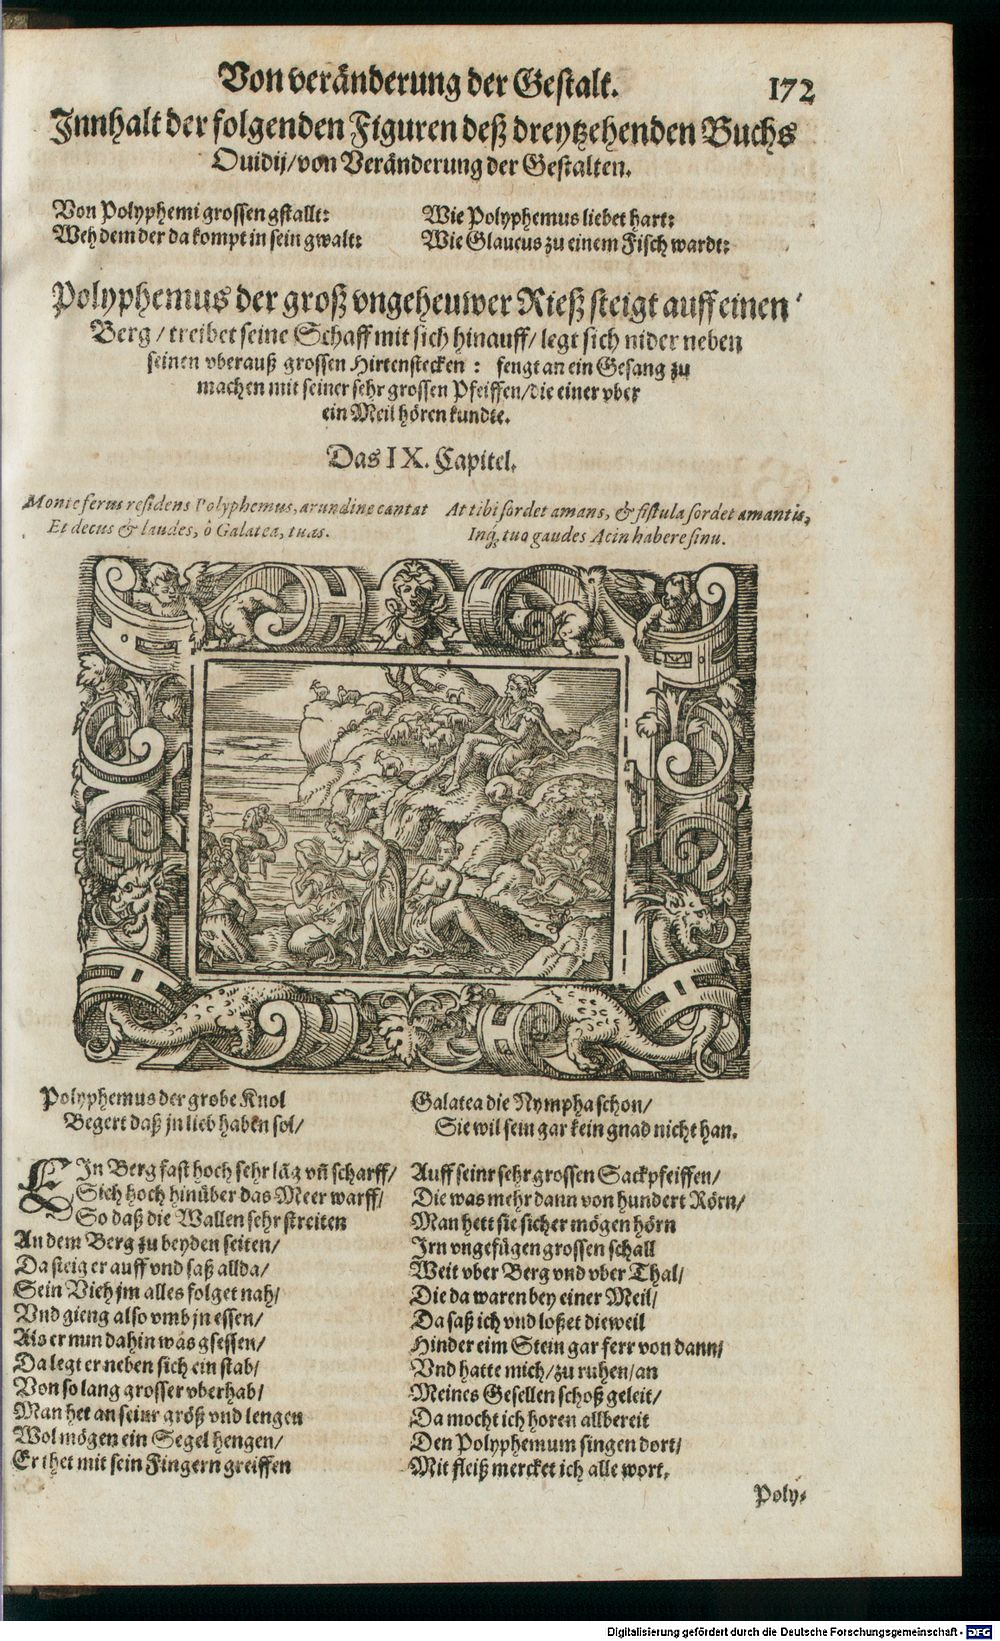 Von veränderung der Gestalt.
172
Innhalt der folgenden Figuren deß dreytzehenden Buchs
Ouidij/von Veränderung der Gestalten.
Von Polyphemi grossen gstallt:
Weh dem der da kompt in sein gwalt:
Wie Polyphemus liebet hart:
Wie Glaucus zu einem Fisch wardt:
Polyphemus der groß vngeheuwer Rieß steigt auff einen
Berg/treibet seine Schaff mit sich hinauff/legt sich nider neben
seinen vberauß grossen Hirtenstecken: fengt an ein Gesang zu
machen mit seiner sehr grossen Pfeiffen/die einer vber
ein Meil hören kundte.
Das IX. Capitel.
Monte ferus residens Polyphemus, arundine cantat
Et decus & laudes, ò Galatea, tuas.
At tibi sordet amans, & fistula sordet amantis,
Inq́; tuo gaudes Acin habere sinu.
Polyphemus der grobe Knol
Begert daß jn lieb haben sol/
Galatea die Nympha schon/
Sie wil sein gar kein gnad nicht han.
EIn Berg fast hoch sehr lāg vñ scharff/
Sich hoch hinüber das Meer warff/
So daß die Wallen sehr streiten
An dem Berg zu beyden seiten/
Da steig er auff vnd saß allda/
Sein Vieh jm alles folget nah/
Vnd gieng also vmb jn essen/
Als er nun dahin was gsessen/
Da legt er neben sich ein stab/
Von so lang grosser vberhab/
Man het an seinr größ vnd lengen
Wol mögen ein Segel hengen/
Er thet mit sein Fingern greiffen
Auff seinr sehr grossen Sackpfeiffen/
Die was mehr dann von hundert Rörn/
Man hett sie sicher mögen hörn
Irn vngefügen grossen schall
Weit vber Berg vnd vber Thal/
Die da waren bey einer Meil/
Da saß ich vnd loßet dieweil
Hinder eim Stein gar ferr von dann/
Vnd hatte mich/zu ruhen/an
Meines Gesellen schoß geleit/
Da mocht ich horen allbereit
Den Polyphemum singen dort/
Mit fleiß mercket ich alle wort.
Poly-
Digitalisierung gefördert durch die Deutsche Forschungsgemeinschaft - DFG